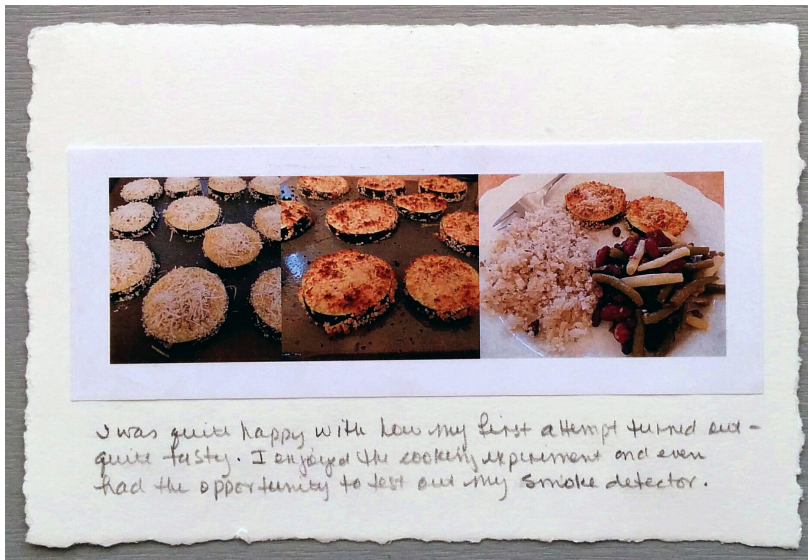 I was quite happy with how my first attempt turned out -
quite tasty. I enjoyed the cooking experiment and even
had the opportunity to test out my smoke detector.